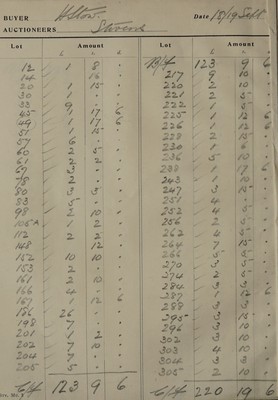 BUYER
AUCTIONEERS Stevens
Date 15/19 Sept
Lot Amount
£
12 1 8 •
14 16 •
20 1 15 •
30 1 • •
33 9 • •
45 1 17 6
49 1 17 6
51 1 15 •
57 6 • •
60 2 5 •
61 2 2 •
69 3 • •
78 2 • •
80 3 3 •
83 5 • •
98 2 10 •
105A 1 2 •
112 2 2 •
148 12 •
152 10 10 •
153 2 • •
161 2 10 •
166 4 • •
167 12 6
186 26 • •
198 7 • •
201 1 2 •
202 7 10 •
204 7 • •
205 5 • •
C/f 123 9 6
Lot Amount
£
B/f 123 9 6
217 9 10 •
220 2 10 •
221 2 5 •
222 1 5 •
225 1 12 6
226 1 12 6
228 2 15 •
230 1 6 •
236 5 10 •
238 1 17 6
243 1 10 •
247 3 15 •
251 4 • •
252 4 5 •
256 2 5 •
262 4 5 •
264 7 15 •
266 5 5 •
270 3 5 •
274 2 5 •
284 3 3 •
287 1 12 6
288 3 3 •
295 3 15 •
296 3 10 •
302 3 10 •
303 4 10 •
304 3 3 •
305 2 10 •
C/f 220 19 6